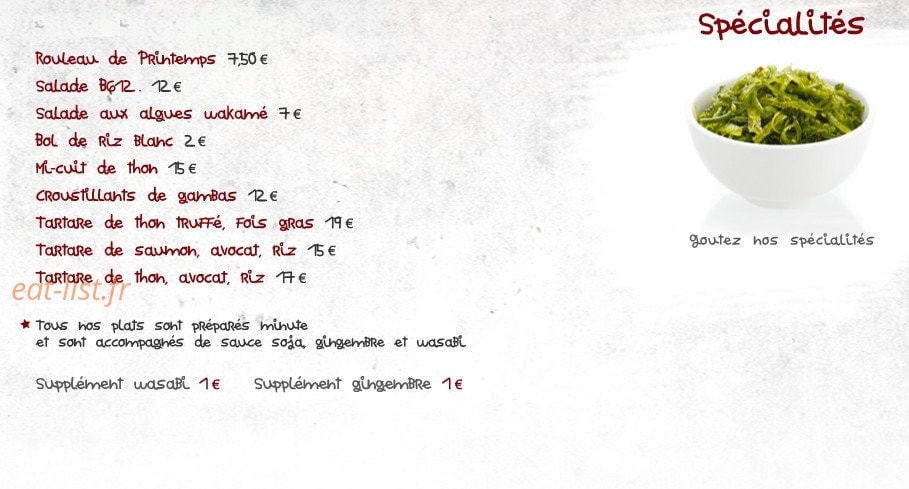 Spécialités
Rouleau de Printemps 7,50 €
Salade BG12. 12 €
Salade aux algues wakamé 7 €
Bol de Riz Blanc 2 €
Mi-cuit de thon 15 €
Croustillants de gambas 12 €
Tartare de thon truffé, fois gras 19 €
Tartare de saumon, avocat, riz 15 €
Tartare de thon, avocat, riz 17 €
eat-list.fr
goutez nos spécialités
★ Tous nos plats sont préparés minute
et sont accompagnés de sauce soja, gingembre et wasabi
Supplément wasabi 1 € Supplément gingembre 1 €